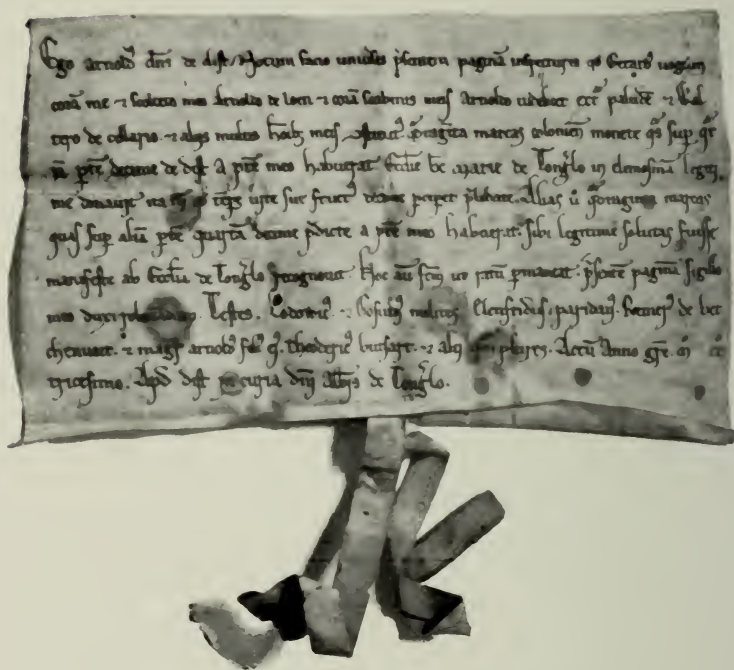 Ego arnold' dn̄s de dist. Notum facio univ̄sis p̄sentem paginā inspecturis qd̄ Gerard'
corā me ⁊ scolteto meo Arnoldo de loen ⁊ corā scabinis meis Arnoldo videlicet ext̄ paludē ⁊ Wal
tero de cellario. ⁊ aliis multis hōībz meis q̄dragīta marcas colonien̄ monete q̄s sup q̄r
tā ptē decime de dist a pt̄e meo habuerat Ecclīe bē Marie de Tongl̄o in elemosinā legiti
me donavit ita q̄ tp̄s vite sue fruct' decime p̄cipet Alias ū q̄draginta marcas
quas sup aliā ptē quartā decime p̄dicte a pt̄e meo habuerat. sibi legitime solutas fuisse
manifeste ab Ecclīa de Tongl̄o recognovit. Hoc aūt fcm̄ ut ratū p̄maneat. p̄sentē paginā sigillo
meo duxi roborandam. Testes. Lodowic'. ⁊ Gosuin' milites. Clenfridus. paridan'. Reiner' de bec
chevoort. ⁊ magr̄ arnold' Theoderic' butsart. ⁊ alii plures. Actū Anno gr̄e. m̊ cc̊
tricesimo. Apd̄ dist in curia dn̄i Abb̄is de Tongl̄o.